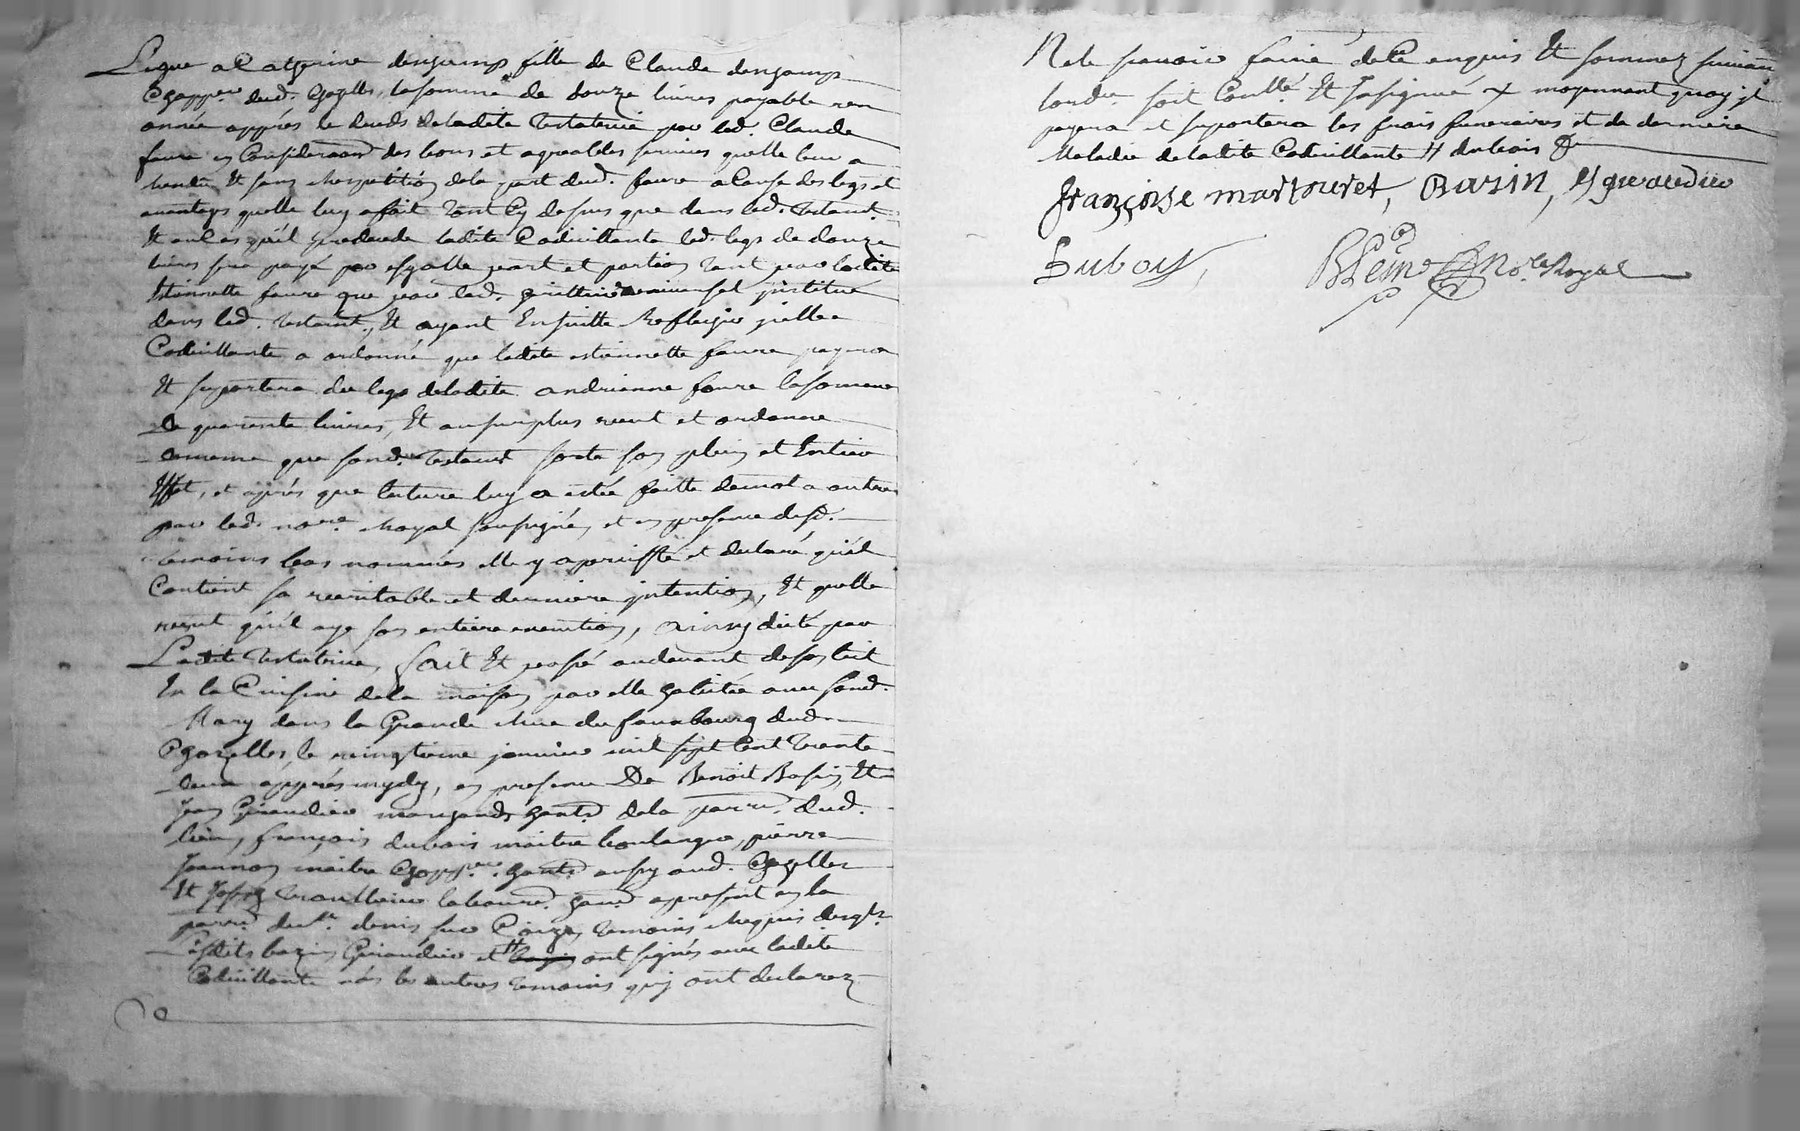 Legue a Catherine deschamps fille de Claude deschamps
Chapper dud. Chazelles, la somme de douze livres payable
année apprés le deceds de ladite testatrice par led. Claude
faure en Consideraon des bons et agreables services quelle luy a
rendu Et sans repetition dela part dud. faure a Cause des legs et
avantages quelle luy a fait tant Cy dessus que dans led. testamt.
Et au Cas qu'il precede ladite Codicillante led. legs de douze
livres sera payé par esgalle part et portion tant par ladite
Estiennette faure que par led. heritier universel institué
dans led. testamt., Et ayant Ensuitte Reflechie jcelle
Codicillante a ordonné que ladite estiennette faure payera
Et suportera du legs deladite andrianne faure la somme
De quarante livres, Et au surplus veut et ordonne
que sond. testamt sorte son plein et Entier
Effet, et aprés que lecture luy a estée faitte de mot a autre
par led. nore Royal soussigné, et en presence desd.
temoins bas nommés elle y a persisté et declaré qu'il
Contient sa veritable et derniere jntention, Et quelle
veut qu'il aye son entiere execution, ainsy dicté par
Ladite testatrice, fait Et passé audevant de son lict
En la Cuisine dela maison par elle habitée avec sond.
Mary dans la Grande Rue du fauxbourg dud.
Chazelles, le vingtieme janvier mil sept Cent trente
deux apprés mydy, en presence De Benoit Basin, Et
Jean Giraudier marchands hants dela parre. dud.
lieu, françois dubois maitre boulanger, pierre
Jeannon maitre Chapper. hant. aussy aud. Chazelles
Et Joseph laboure. hant. a present en la
parre. de st. denis sur Coize, temoins Requis desqls.
Lesdits bazin Giraudier et H ont signés avec ladite
Codicillante nón les autres temoins qui ont declarez
Ne le scavoir faire de Ce enquis Et sommez suivant
lordre. soit Conllé. Et Jnsignué + moyennant quoy jl
payera et suportera les frais funeraires et de derniere
Maladie deladite Codicillante H dubois
françoise martouret, Basin, Jgiraudier
Duboy,
Nore. Royal